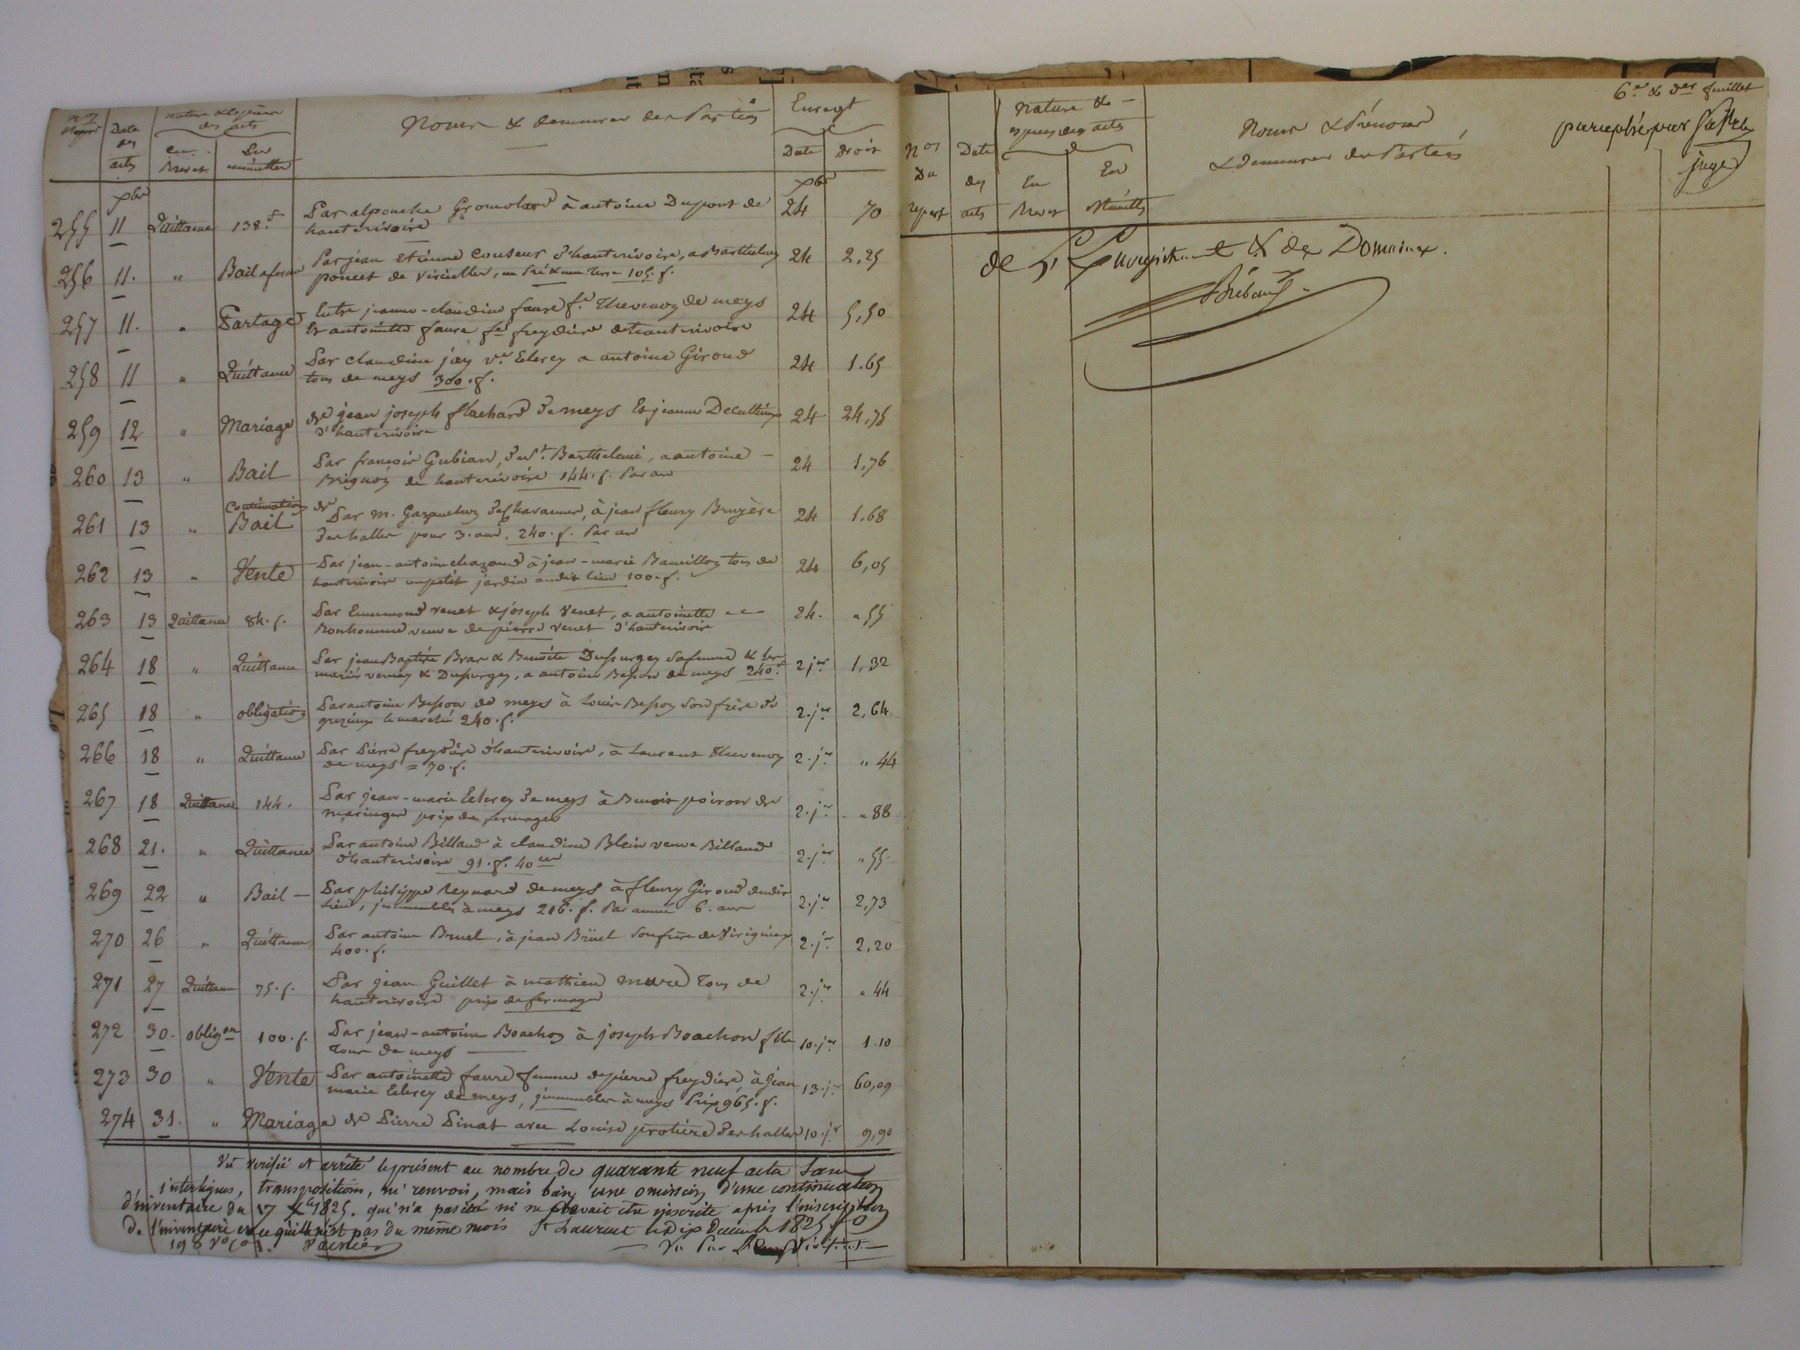 Nos Date nature & espèces Noms & demeures des Parties Enregt
Repert des des actes
actes en Brevet En minutte Date droits
xbre xbre
255 11 Quittance 138 f Par alponche Gromolard à antoine Dupont de 24 70
hauterivoire
256 11. " Bail a ferme Par jean etienne Couseur d'hauterivoire, a Barthelemy 24 2,25
poncet de , un Pré & une Terre 105. f.
257 11. " Partage Entre jeanne-claudine faure fe Thevenon de meys 24 5,50
Et antoinette faure fe freydière d'hauterivoire
258 11 " Quittance Par claudine jay ve Eclercy a antoine Giroud 24 1.65
tous de meys 300. f.
259 12 " Mariage de jean joseph flachard de meys Et jeanne 24 24,75
d'hauterivoire
260 13 " Bail Par françois Gubian, de St. Barthelemi, a antoine 24 1,76
Brignon de hauterivoire 144. f. Par an
261 13 " Continuation de
Bail Par m. , à jean fleury Bruyère 24 1,68
des halles pour 3. ans, 240. f. Par an
262 13 " Vente Par jean-antoine chazaud à jean-marie tous de 24 6,05
hauterivoire un petit jardin audit lieu 100. f.
263 13 Quittance 84. f. Par Ennemond venet & joseph venet, a antoinette 24. " 55
Bonhomme veuve de pierre venet d'hauterivoire
264 18 " Quittance Par jean Baptiste Bras & Benoite Dupurgey sa femme & 2 jer 1,32
marie verney & Dupurgey, a antoine Besson de meys 240 f
265 18 " obligation Par antoine Besson de meys à Louis Besson son frère de 2. jer 2,64
grezieux le marché 240. f.
266 18 " Quittance Par Pierre freydière d'hauterivoire, à Laurent Thevenon 2. jer " 44
de meys = 70. f.
267 18 Quittance 144. Par jean-marie Eclercy de meys à Benoit poiron de 2. jer " 88
maringes prix de fermages
268 21. " Quittance Par antoine Billaud à claudine Blein veuve Billaud 2. jer " 55
d'hauterivoire 91. f. 40 ces
269 22 " Bail Par philippe Reynard de meys à fleury Giroud dudit 2. jer 2,73
Lieu, immeubles à meys 216. f. Par année 6. ans
270 26 " Quittance Par antoine Bruel, à jean Bruel son frère de Virigneux 2. jer 2,20
400. f.
271 27 Quittance 75. f. Par jean Guillet à mathieu mure Tous de 2. jer " 44
hauterivoire prix de fermage
272 30. obligon 100. f. Par jean-antoine Boachon à joseph Boachon fils 10. jer 1.10
Tous de meys
273 30 " Vente Par antoinette faure femme de pierre freydière, à jean 13. jer 60,09
marie Eclercy de meys, immeubles à meys Prix 965. f.
274 31. " Mariage de Pierre Pinat avec Louise protière des halles 10. jr 9,90
Vu vérifié et arrêté le présent au nombre de quarante neuf actes sans
interlignes, transpositions, ni renvois, mais bien une omission d'une continuation
d'inventaire du 17 1825. qui n'a pas été ni ne pouvait être inscrite après l'inscription
de l'inventaire en ce qu'il n'est pas du même mois St Laurent le dix 1825 fo
198 Vo Vu Par
6e & der feuillet
paraphé par
juge
Nos Date Nature & Noms & Prénoms
Du des espèces des actes & Demeures des Parties
repert actes En Brevet En Minutte
de L'Enregistrement & des Domaines.